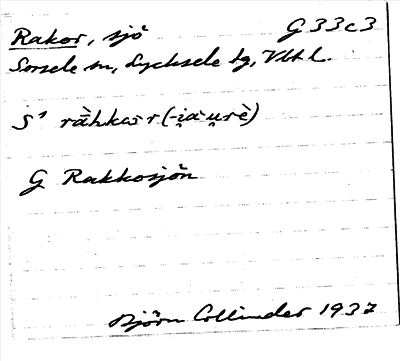 Rakor, sjö G 33 c 3
Sorsele sn, Lycksele lg, Vbt l.
S' rä̀hkɑr (-i̯ɑ̀u̯rè)
G Rakkosjön
Björn Collinder 1937